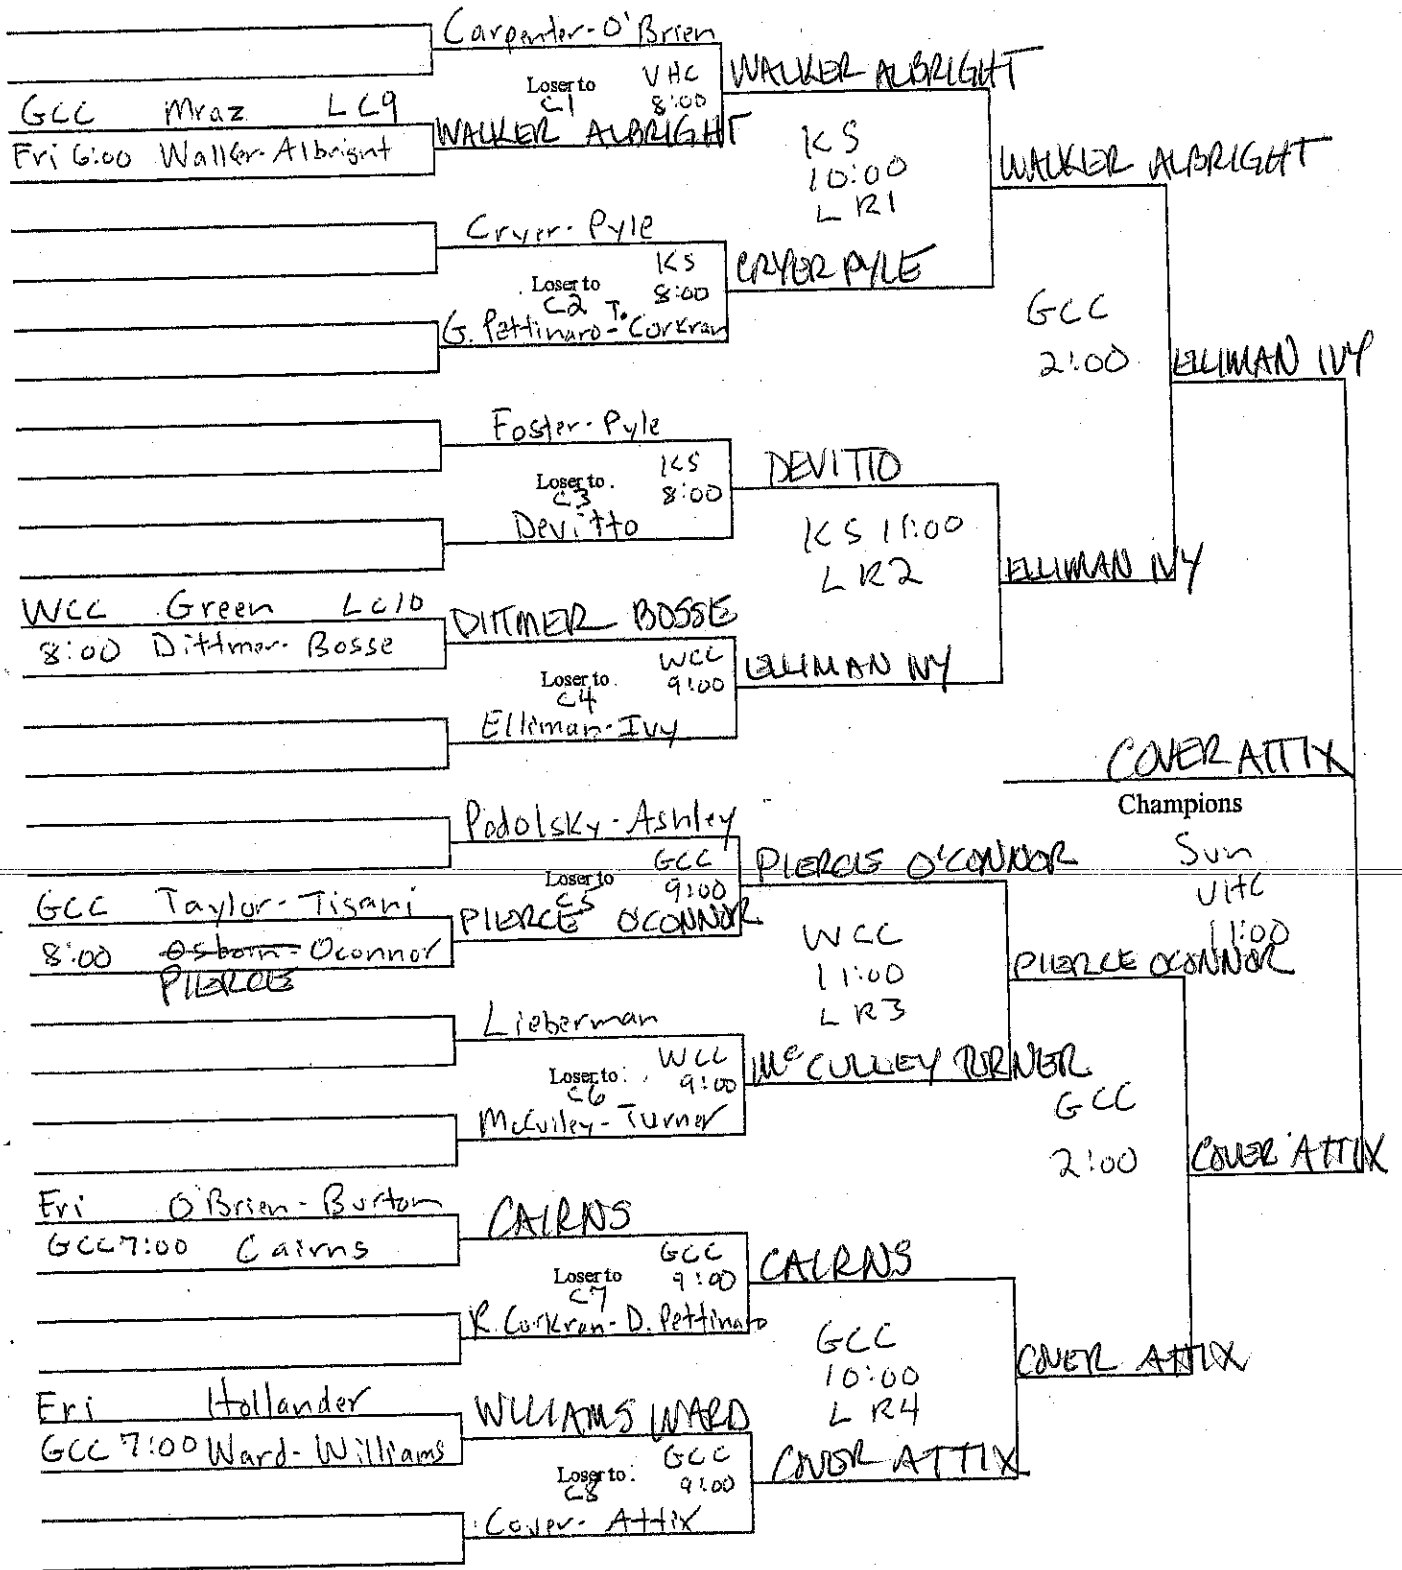 Carpenter-O'Brien
Loser to VHC
C1 8:00
WALKER ALBRIGHT
GCC Mraz LC9
Fri 6:00 Walker-Albright
WALKER ALBRIGHT
KS
10:00
L R1
WALKER ALBRIGHT
Cryer-Pyle
Loser to KS
C2 8:00
G. Pettinaro-T. Corkran
CRYER PYLE
GCC
2:00
ELLIMAN IVY
Foster-Pyle
Loser to KS
C3 8:00
Devitto
DEVITTO
KS 11:00
L R2
ELLIMAN IVY
WCC Green LC10
8:00 Dittmer-Bosse
DITTMER BOSSE
Loser to WCC
C4 9:00
Elliman-Ivy
ELLIMAN IVY
COVER ATTIX
Champions
Sun
VHC
11:00
Podolsky-Ashley
Loser to GCC
C5 9:00
PIERCE O'CONNOR
GCC Taylor-Tigani
8:00 Osborn-Oconnor
PIERCE
PIERCE OCONNOR
WCC
11:00
L R3
PIERCE OCONNOR
Lieberman
Loser to: WCC
C6 9:00
McCulley-Turner
McCULLEY TURNER
GCC
2:00
COVER ATTIX
Fri O'Brien-Burton
GCC 7:00 Cairns
CAIRNS
Loser to GCC
C7 9:00
R. Corkran-D. Pettinaro
CAIRNS
GCC
10:00
L R4
COVER ATTIX
Fri Hollander
GCC 7:00 Ward-Williams
WILLIAMS WARD
Loser to: GCC
C8 9:00
Cover-Attix
COVER ATTIX